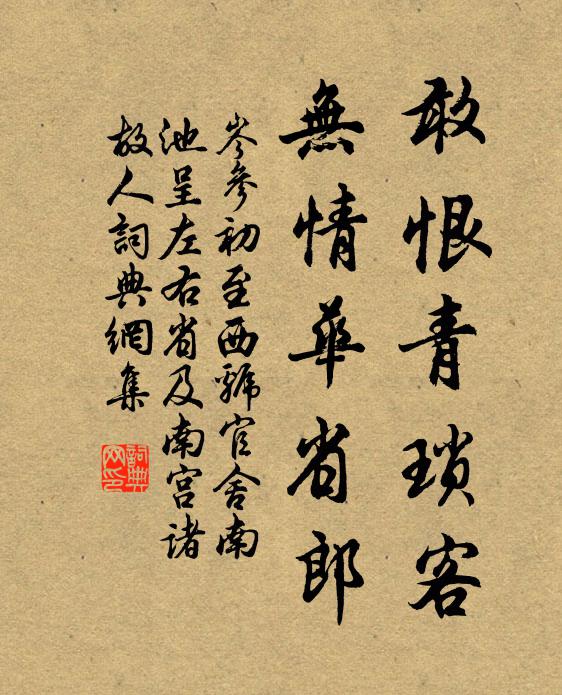 敢恨青瑣客
無情華省郎
岑參初至西虢官舍南
池呈左右省及南宮諸
故人詞典網集
詞典網印